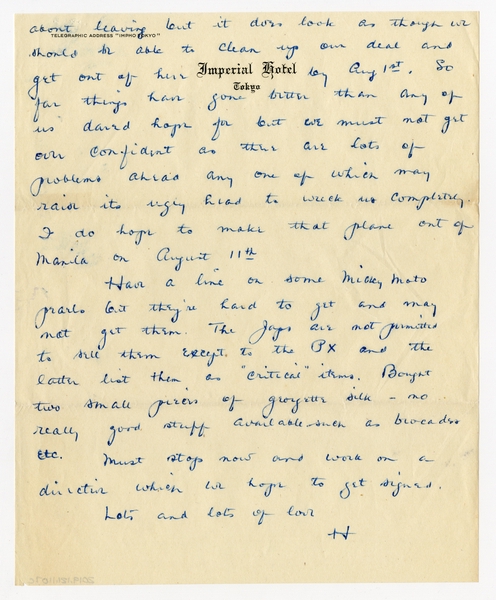 about leaving but it does look as though we
TELEGRAPHIC ADDRESS "IMPHO TOKYO"
should be able to clean up our deal and
Imperial Hotel
get out of here by Aug 1st. So
Tokyo
far things have gone better than any of
us dared hope for but we must not get
over confident as there are lots of
problems ahead any one of which may
raise its ugly head to wreck us completely.
I do hope to make that plane out of
Manila on August 11th
Have a line on some Micky Moto
pearls but they're hard to get and may
not get them. The Japs are not permitted
to sell them except to the PX and the
latter list them as "critical" items. Bought
two small pieces of georgette silk - no
really good stuff available such as brocades
etc. Must stop now and work on a
directive which we hope to get signed.
Lots and lots of love
H